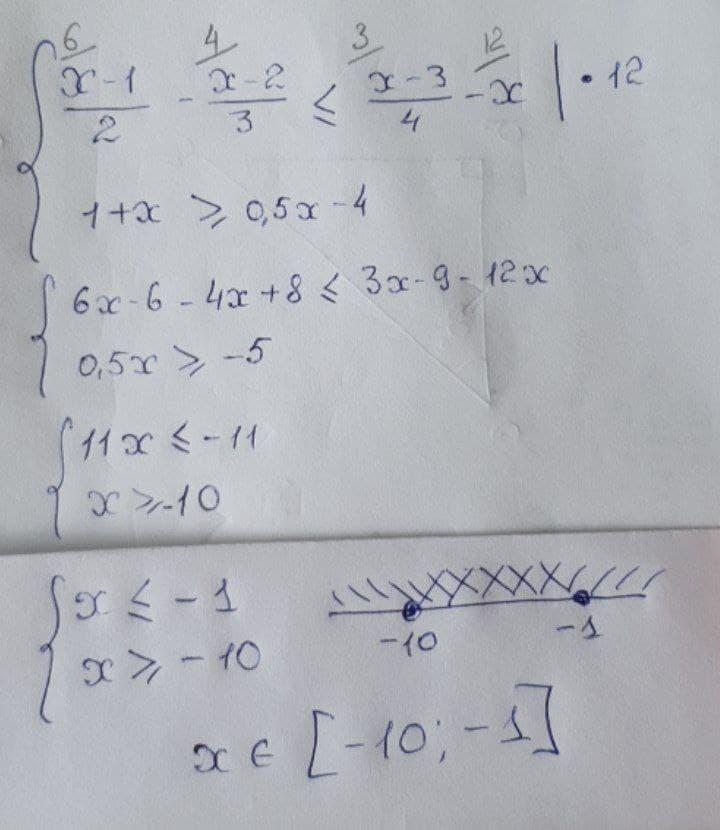 6/ 4/ 3/ 12/
{ (x-1)/2 - (x-2)/3 ≤ (x-3)/4 - x | • 12
1+x ≥ 0,5x-4
{ 6x-6-4x+8 ≤ 3x-9-12x
0,5x ≥ -5
{ 11x ≤ -11
x ≥ -10
{ x ≤ -1
x ≥ -10
-10 -1
x ∈ [-10; -1]